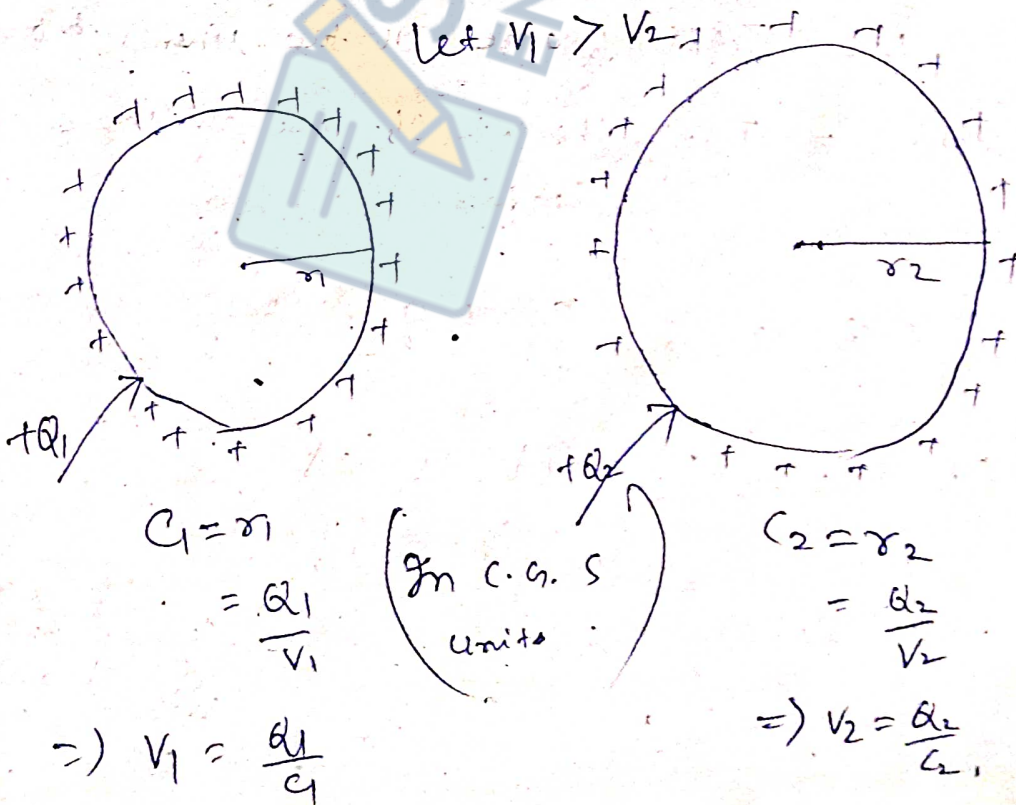 Let V₁ > V₂
r₁
r₂
+Q₁
+Q₂
C₁ = r₁
= Q₁/V₁
=) V₁ = Q₁/C₁
(In C.G.S
units)
C₂ = r₂
= Q₂/V₂
=) V₂ = Q₂/C₂